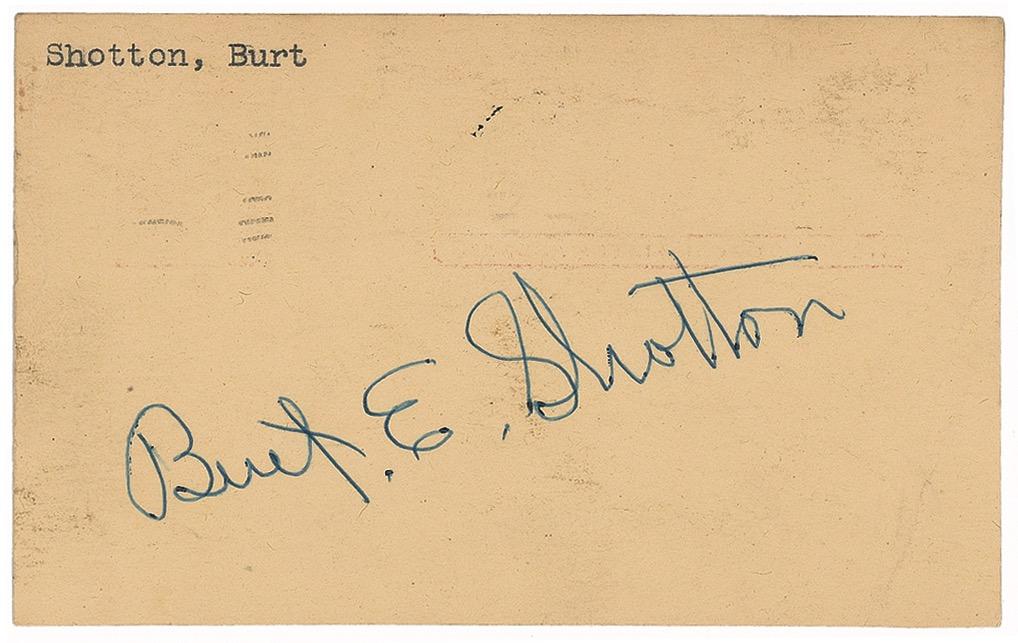 Shotton, Burt
Burt. E. Shotton